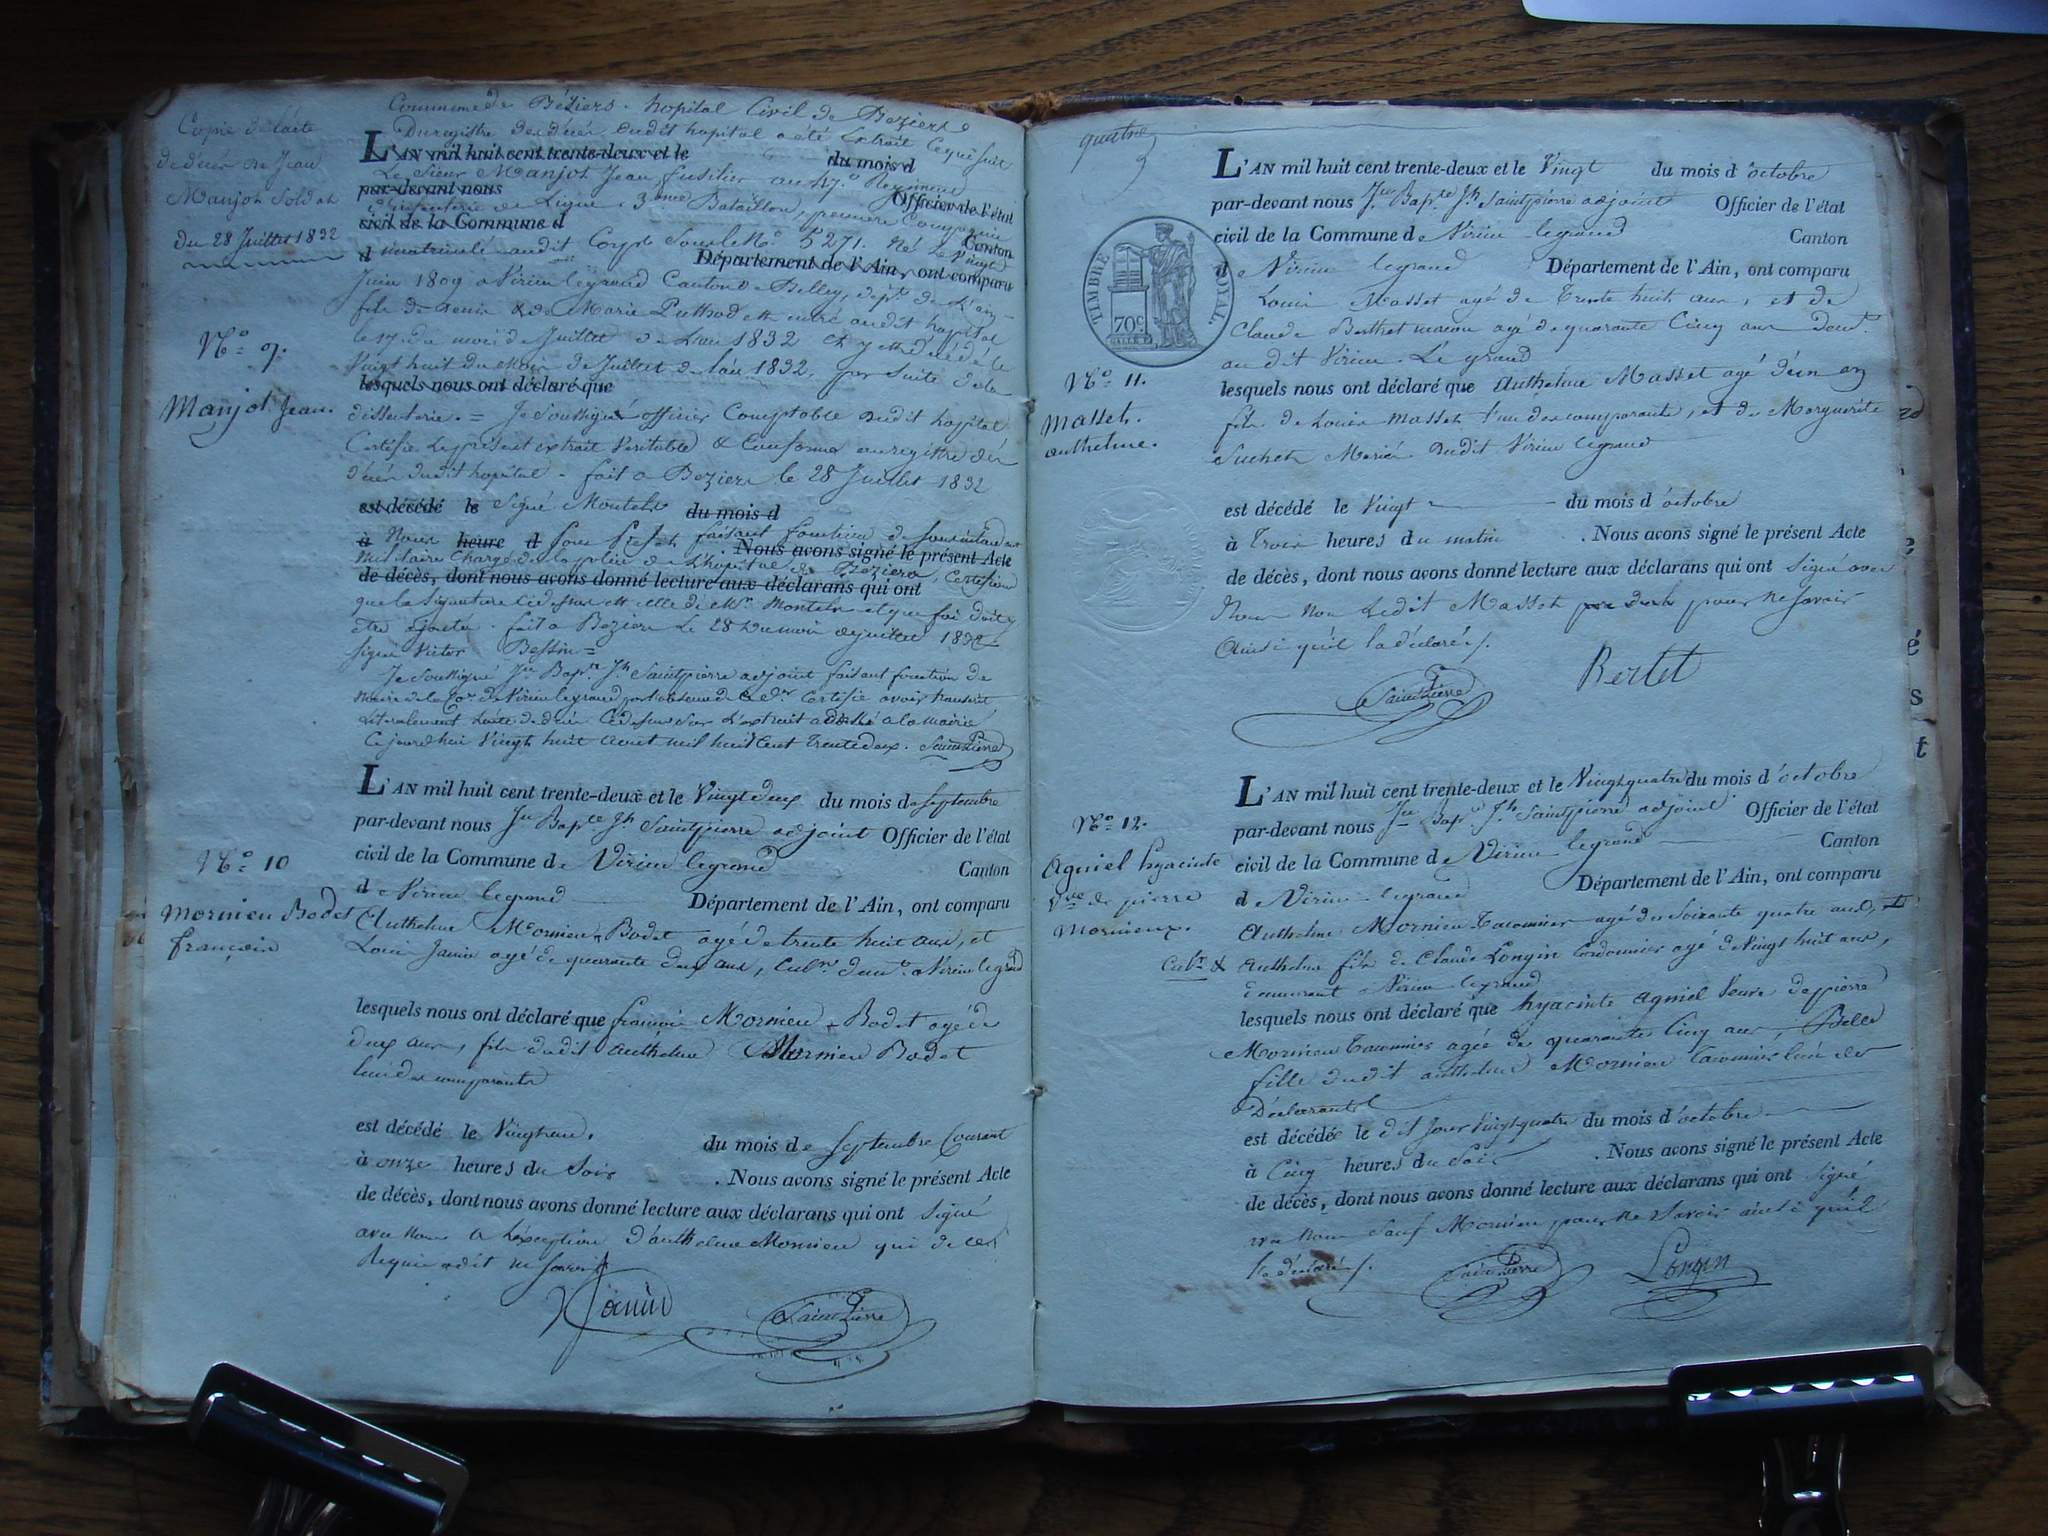 Copie de l'acte
de décès de Jean
Manjot Soldat
du 28 Juillet 1832
Commune de Béziers. hopital Civil de Beziers
Du registre des décès dudit hopital a été Extrait ce qui suit
L'AN mil huit cent trente-deux et le du mois d
Le Sieur Manjot Jean fusilier au 47.e Régiment
par-devant nous Officier de l'état
d'infanterie de Ligne, 3eme Bataillon, première Compagnie
civil de la Commune d Canton
matriculé audit Corps Sous le No. 5271. Né le Vingt
d Département de l'Ain, ont comparu
Juin 1809 a Virieu legrand Canton de Belley, dépt. de L'ain
fils de & de Marie est entré audit hopital
le 17 du mois de Juillet de L'an 1832 et y est décédé le
Vingt huit du Mois de Juillet de l'an 1832, par Suite de la
lesquels nous ont déclaré que
N.o 9.
Manjot Jean.
dissenterie. = Je Soussigné officier Comptable dudit hopital
Certifie le présent extrait Veritable & Conforme au registre des
décès dudit hopital. fait a Beziers le 28 Juillet 1832
est décédé le Signé Montels du mois d
à Nous heure d Sous Prefet faisant fonction de Sous intendant
Nous avons signé le présent Acte
militaire Chargé de la police de L'hopital de Beziers, Certifions
de décès, dont nous avons donné lecture aux déclarans qui ont
que la Signature ci dessus est celle de Mr. Montels et que foi doit y
etre ajoutée. fait a Beziers le 28 du mois de juillet 1832
signé Victor Bessin =
Je Soussigné Jn Bapte Jh Saintpierre adjoint faisant fonction de
maire de la Cne de Virieu legrand par absence de Certifie avoir transcrit
Litteralement L'acte de décès Ci dessus Sur L'extrait adressé a la mairie
Ce jourd'hui Vingt huit aout mil huit Cent Trente deux. SaintPierre
L'AN mil huit cent trente-deux et le Vingt deux du mois de Septembre
par-devant nous Jn Bapte Jh Saintpierre adjoint Officier de l'état
civil de la Commune de Virieu legrand Canton
de Virieu legrand Département de l'Ain, ont comparu
N.o 10
Mornieu Bodet
françois
Anthelme Mornieu Bodet agé de trente huit ans, et
Louis Janin agé de quarante deux ans, Cultrs demt. a Virieu legrand
lesquels nous ont déclaré que françois Mornieu Bodet agé de
deux ans, fils dudit anthelme Mornieu Bodet
l'un des comparants
est décédé le Vingt un, du mois de Septembre Courant
à onze heures du Soir . Nous avons signé le présent Acte
de décès, dont nous avons donné lecture aux déclarans qui ont Signé
avec Nous a l'exception d'anthelme Mornieu qui de ce
Requis a dit ne Savoir
Janin SaintPierre
quatre
TIMBRE ROYAL.
70c
L'AN mil huit cent trente-deux et le Vingt du mois d'octobre
par-devant nous Jn Bapte Jh Saintpierre adjoint Officier de l'état
civil de la Commune de Virieu legrand Canton
de Virieu legrand Département de l'Ain, ont comparu
Louis Masset agé de Trente huit ans, et de
Claude Berthet agé de quarante Cinq ans demt.
au dit Virieu Le grand
N.o 11.
Masset.
anthelme.
lesquels nous ont déclaré que Anthelme Masset agé d'un an
fils de Louis Masset l'un des comparants, et de Marguerite
Suchet Mariés dudit Virieu legrand
est décédé le Vingt du mois d'octobre
à Trois heures du matin . Nous avons signé le présent Acte
de décès, dont nous avons donné lecture aux déclarans qui ont Signé avec
Nous Non Ledit Masset pour ne Savoir
Ainsi qu'il la déclaré ./.
SaintPierre Bertet
L'AN mil huit cent trente-deux et le Vingt quatre du mois d'octobre
par-devant nous Jn Bapte Jh Saintpierre adjoint Officier de l'état
civil de la Commune de Virieu legrand Canton
de Virieu legrand Département de l'Ain, ont comparu
N.o 12.
Agniel hyacinte
Vve de pierre
Mornieux.
Anthelme Mornieu Tacounier agé de Soixante quatre ans,
Cultr & Anthelme fils de Claude Longin Cordonnier agé de Vingt huit ans,
demeurant a Virieu legrand
lesquels nous ont déclaré que hyacinte agniel Veuve de pierre
Mornieu Tacounier agée de quarante Cinq ans, Belle
fille dudit anthelme Mornieu Tacounier l'un des
Déclarants
est décédée le dit jour Vingt quatre du mois d'octobre
à Cinq heures du Soir . Nous avons signé le présent Acte
de décès, dont nous avons donné lecture aux déclarans qui ont Signé
avec Nous Sauf Mornieu pour ne Savoir ainsi qu'il
l'a déclaré ./. SaintPierre Longin